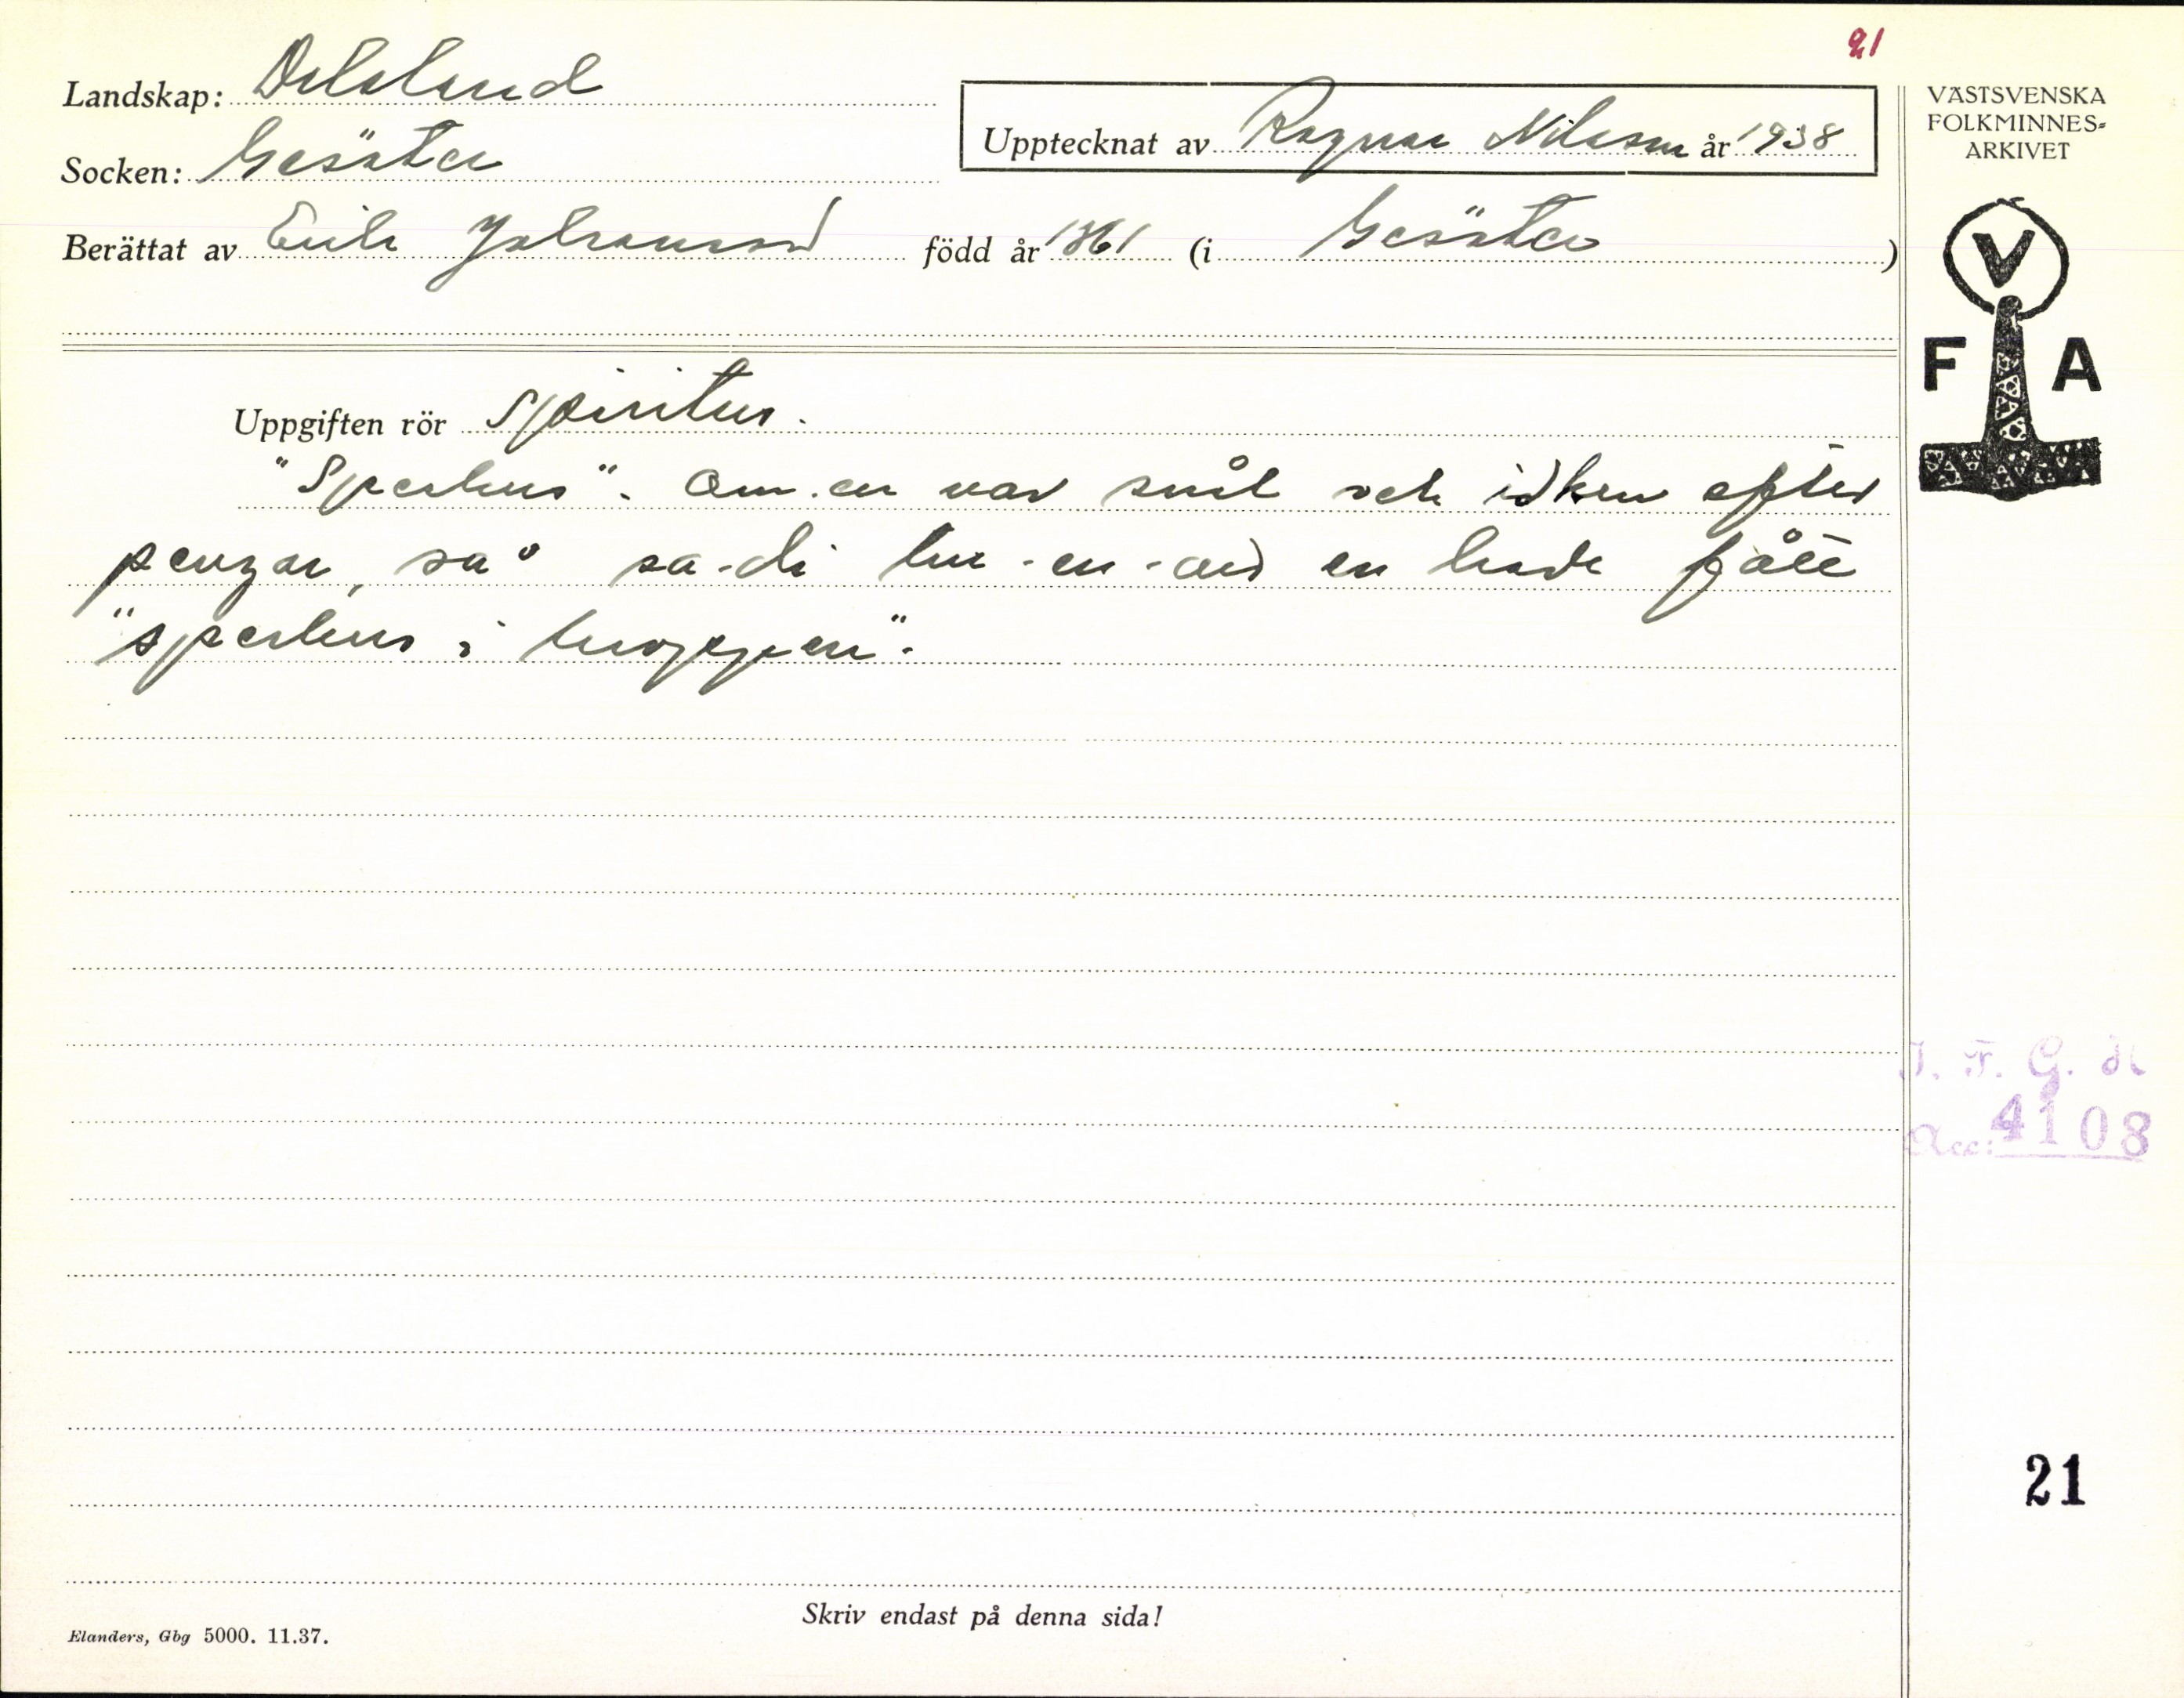 21
Landskap: Dalsland
Socken: Gesäter
Upptecknat av Ragnar Nilsson år 1938
Berättat av Erik Johansson född år 1861 (i Gesäter)
VÄSTSVENSKA
FOLKMINNES-
ARKIVET
V
F A
Uppgiften rör Spiritus.
"Sperhus". Om en var snål och idken efter
pengar, så sa-di om-en-att en hade fått
"sperhus i kroppen".
I. F. G. H
Acc: 4108
21
Skriv endast på denna sida!
Elanders, Gbg 5000. 11.37.